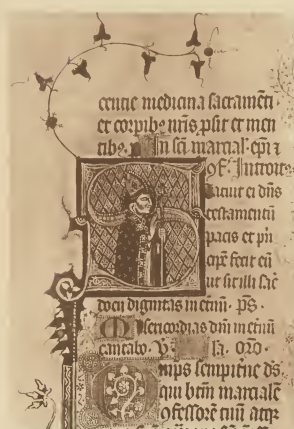 centie medicina sacramēti ·
et corpibꝫ nr̄is ꝓsit et men
tibꝫ. In sc̄i marcial· ep̄i ⁊
ꝯf· Introit9
Statuit ei dn̄s
testamentū
pacis et pn̄
cipē fecit eū
ut sit illi sac̄
docij dignitas in et̄nū· p̄s·
Misericordias dn̄i in et̄nū
cantabo. Oꝛ̄o·
Om̄ps sempit̄ne ds̄
qui bt̄m marcialē
ꝯfessorē tuū atqꝫ